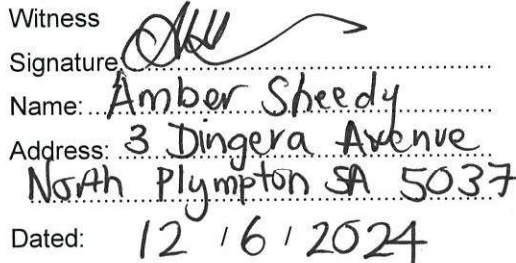 Witness
Signature
Name: Amber Sheedy
Address: 3 Dingera Avenue
North Plympton SA 5037
Dated: 12 / 6 / 2024